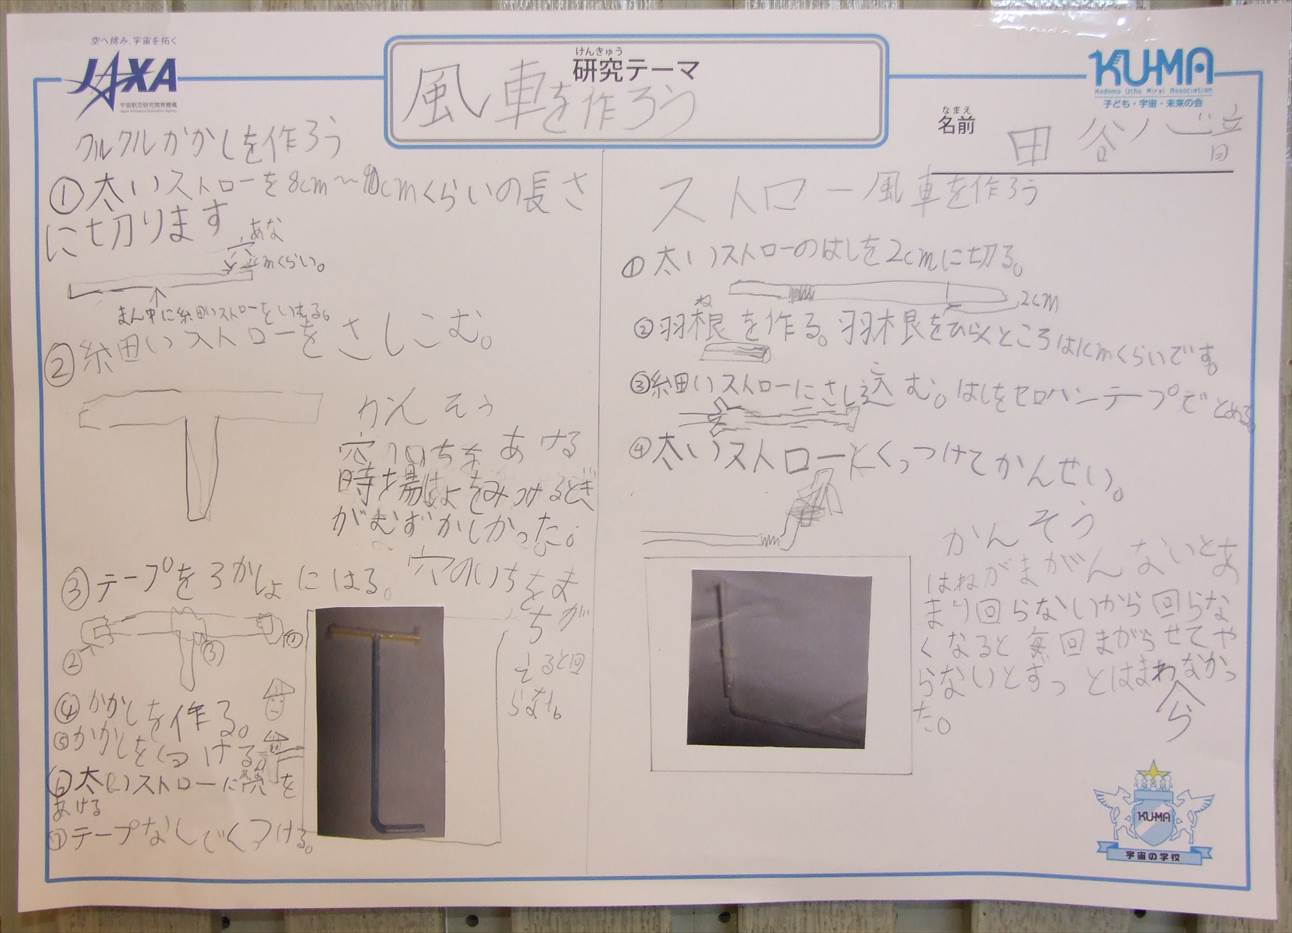 空へ挑み、宇宙を拓く
JAXA
宇宙航空研究開発機構
けんきゅう
研究テーマ
風車を作ろう
KU-MA
Kodomo Uchu Mirai Association
子ども・宇宙・未来の会
なまえ
名前
田谷心音
クルクルかかしを作ろう
①太いストローを8cm〜10cmくらいの長さ
に切ります
あな
穴
cmくらい。
まん中に細いストローをいれる。
②細いストローをさしこむ。
かんそう
穴のいちをあける
時場しょをみつけるとき
がむずかしかった。
穴のいちをま
ちが
えると回
らない。
③テープを3かしょにはる。
②
③
④かかしを作る。
⑤かかしをくっつける。
⑥太いストローに穴を
あける
⑦テープなしでくっつける。
ストロー風車を作ろう
①太いストローのはしを2cmに切る。
2cm
ね
②羽根を作る。羽根をひらくところは1cmくらいです。
③細いストローにさし込む。はしをセロハンテープでとめる。
こ
④太いストローとくっつけてかんせい。
かんそう
はねがまがんないとあ
まり回らないから回らな
くなると毎回まがらせてや
らないとずっとはまわらなかっ
た。
KU-MA
宇宙の学校